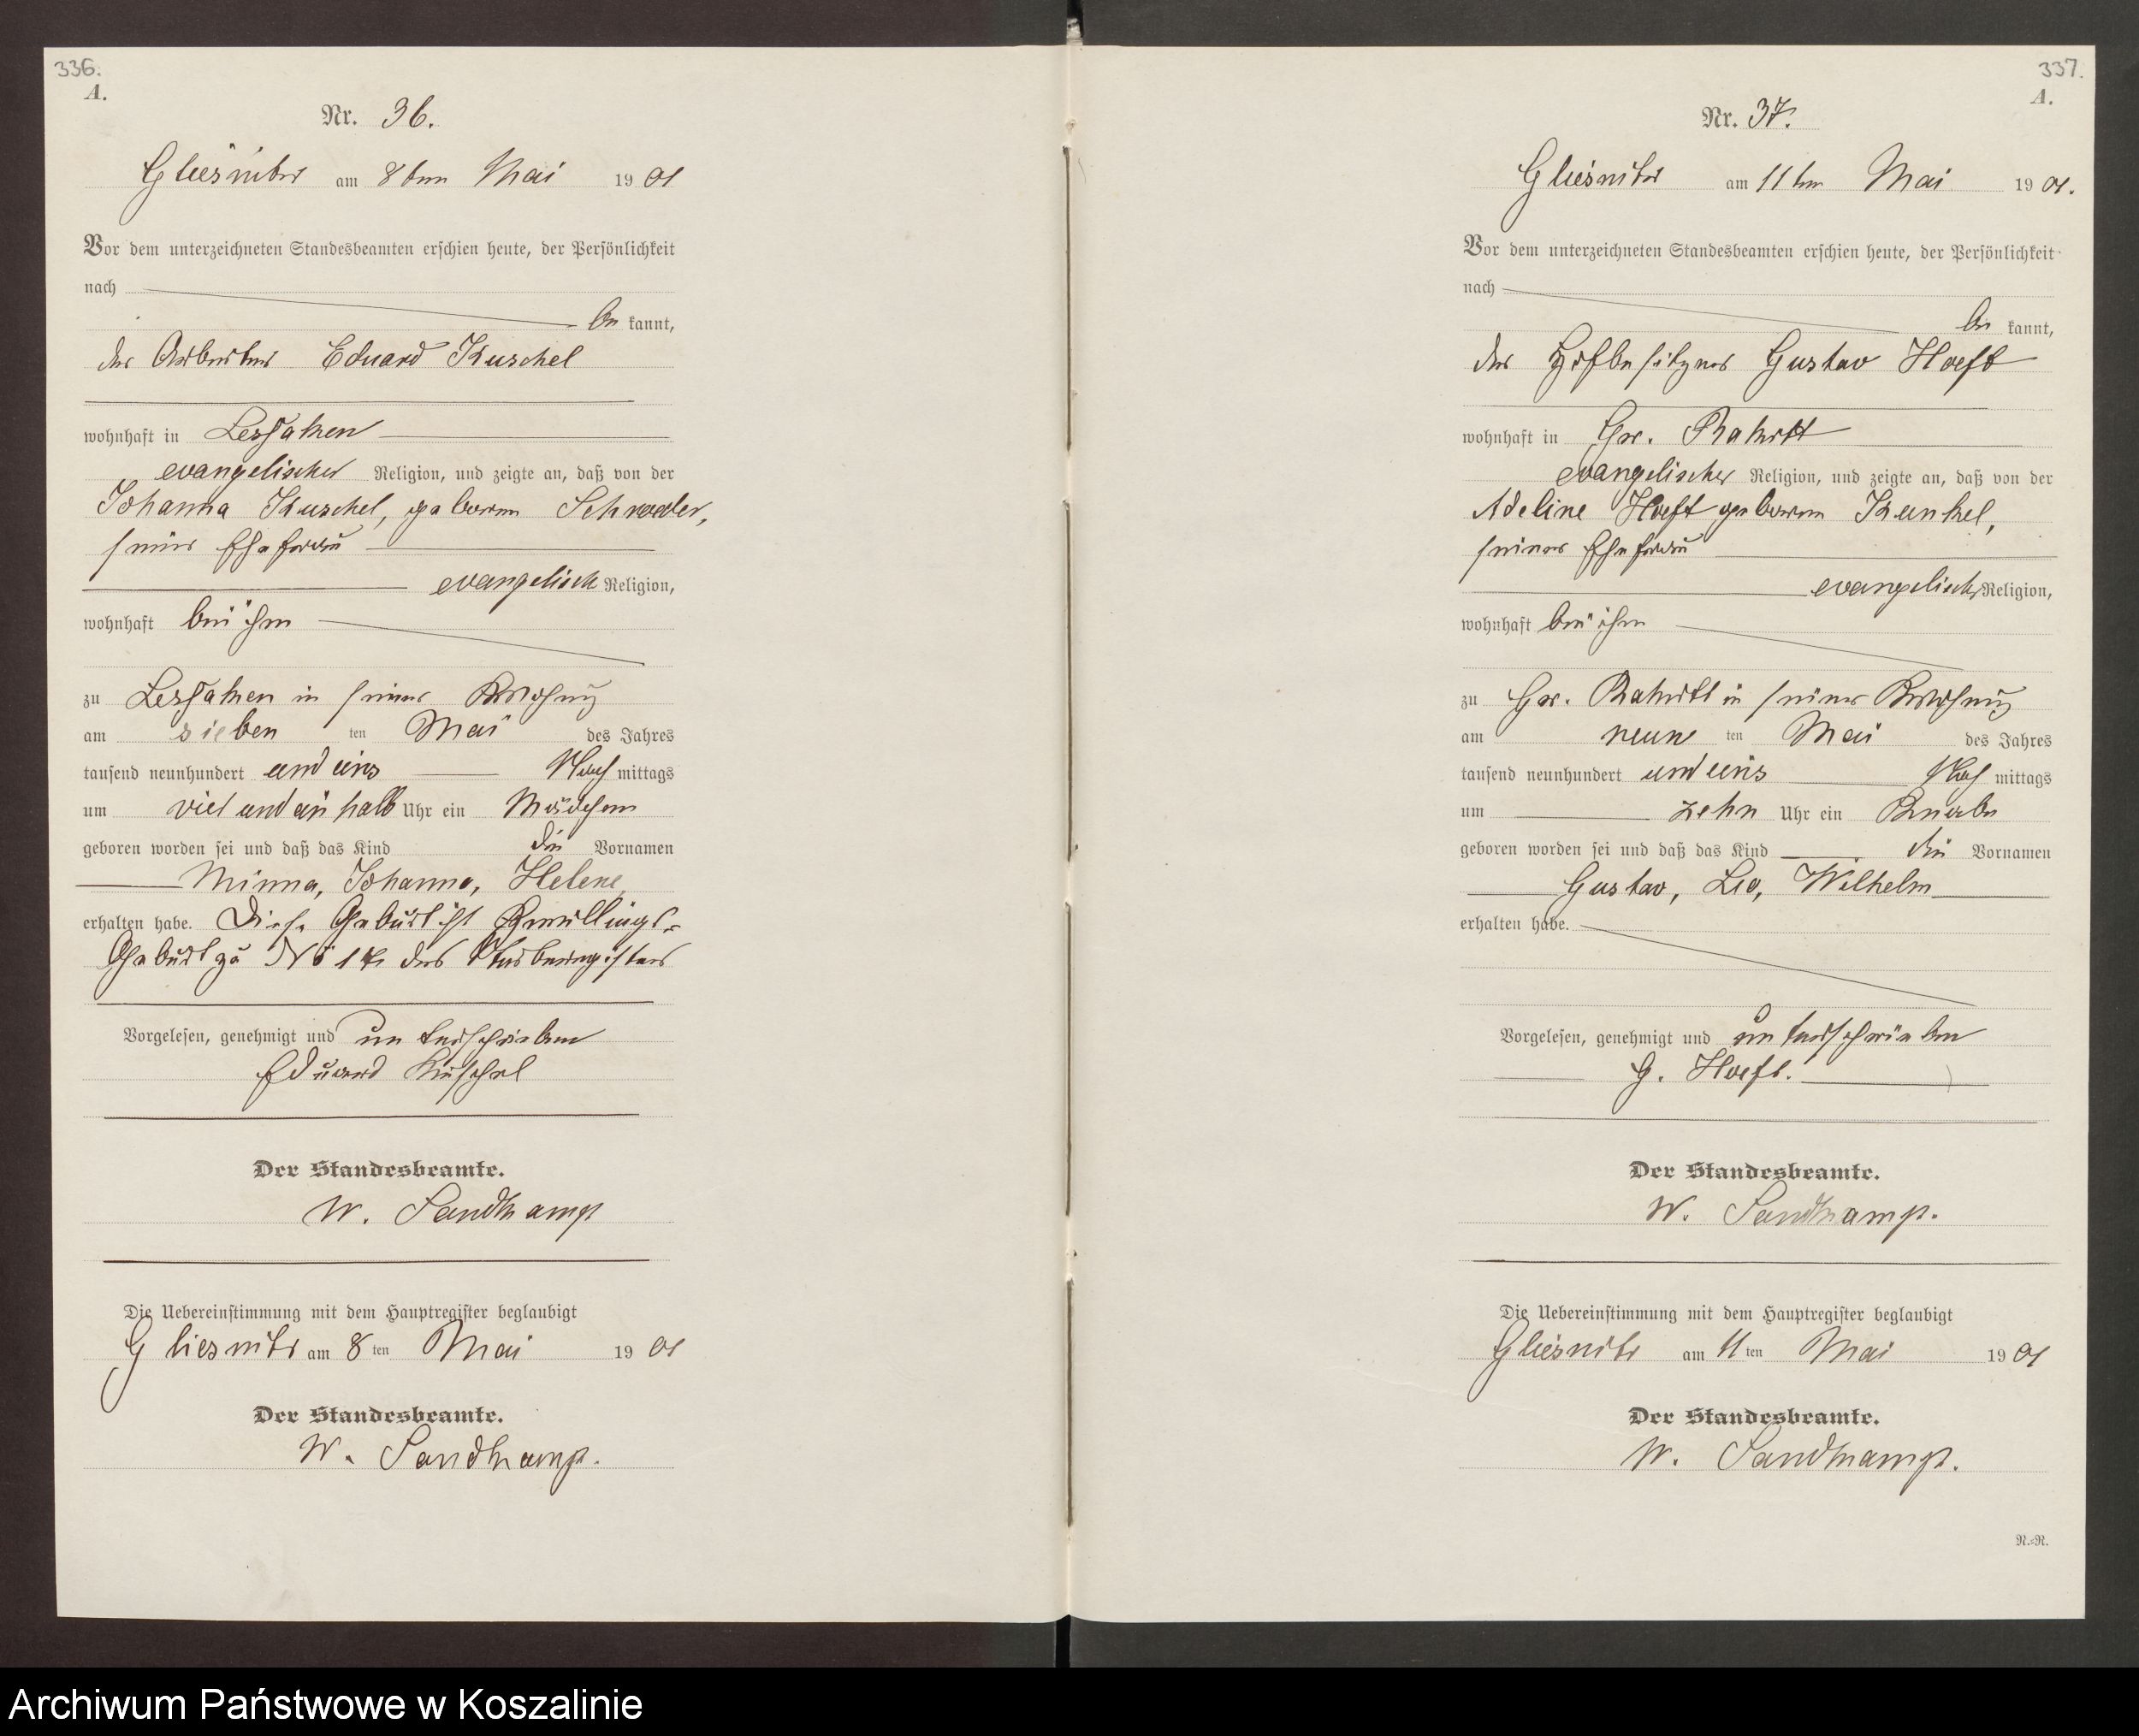 336.
A.
Nr. 36.
Gliesnitz am 8ten Mai 1901
Vor dem unterzeichneten Standesbeamten erschien heute, der Persönlichkeit
nach
be kannt,
der Arbeiter Eduard Kuschel
wohnhaft in Lessaken
evangelischer Religion, und zeigte an, daß von der
Johanna Kuschel, geborenen Schroeder,
seiner Ehefrau
evangelisch Religion,
wohnhaft bei ihm
zu Lessaken in seiner Wohnung
am sieben ten Mai des Jahres
tausend neunhundert und eins Nach mittags
um vier und ein halb Uhr ein Mädchen
geboren worden sei und daß das Kind die Vornamen
Minna, Johanna, Helene
erhalten habe. Diese Geburt ist Zwillings-
Geburt zu No des Sterberegisters
Vorgelesen, genehmigt und unterschrieben
Eduard Kuschel
Der Standesbeamte.
W. Sandkamp
Die Uebereinstimmung mit dem Hauptregister beglaubigt
Gliesnitz am 8ten Mai 1901
Der Standesbeamte.
W. Sandkamp.
337.
A.
Nr. 37.
Gliesnitz am 11ten Mai 1901.
Vor dem unterzeichneten Standesbeamten erschien heute, der Persönlichkeit
nach
be kannt,
der Hofbesitzer Gustav Hoeft
wohnhaft in Gr. Rakitt
evangelischer Religion, und zeigte an, daß von der
Adeline Hoeft geborenen Kunkel,
seiner Ehefrau
evangelischer Religion,
wohnhaft bei ihm
zu Gr. Rakitt in seiner Wohnung
am neun ten Mai des Jahres
tausend neunhundert und eins Nach mittags
um zehn Uhr ein Knabe
geboren worden sei und daß das Kind die Vornamen
Gustav, Leo, Wilhelm
erhalten habe.
Vorgelesen, genehmigt und unterschrieben
G. Hoeft.
Der Standesbeamte.
W. Sandkamp.
Die Uebereinstimmung mit dem Hauptregister beglaubigt
Gliesnitz am 11ten Mai 1901
Der Standesbeamte.
W. Sandkamp.
R.=R.
Archiwum Państwowe w Koszalinie